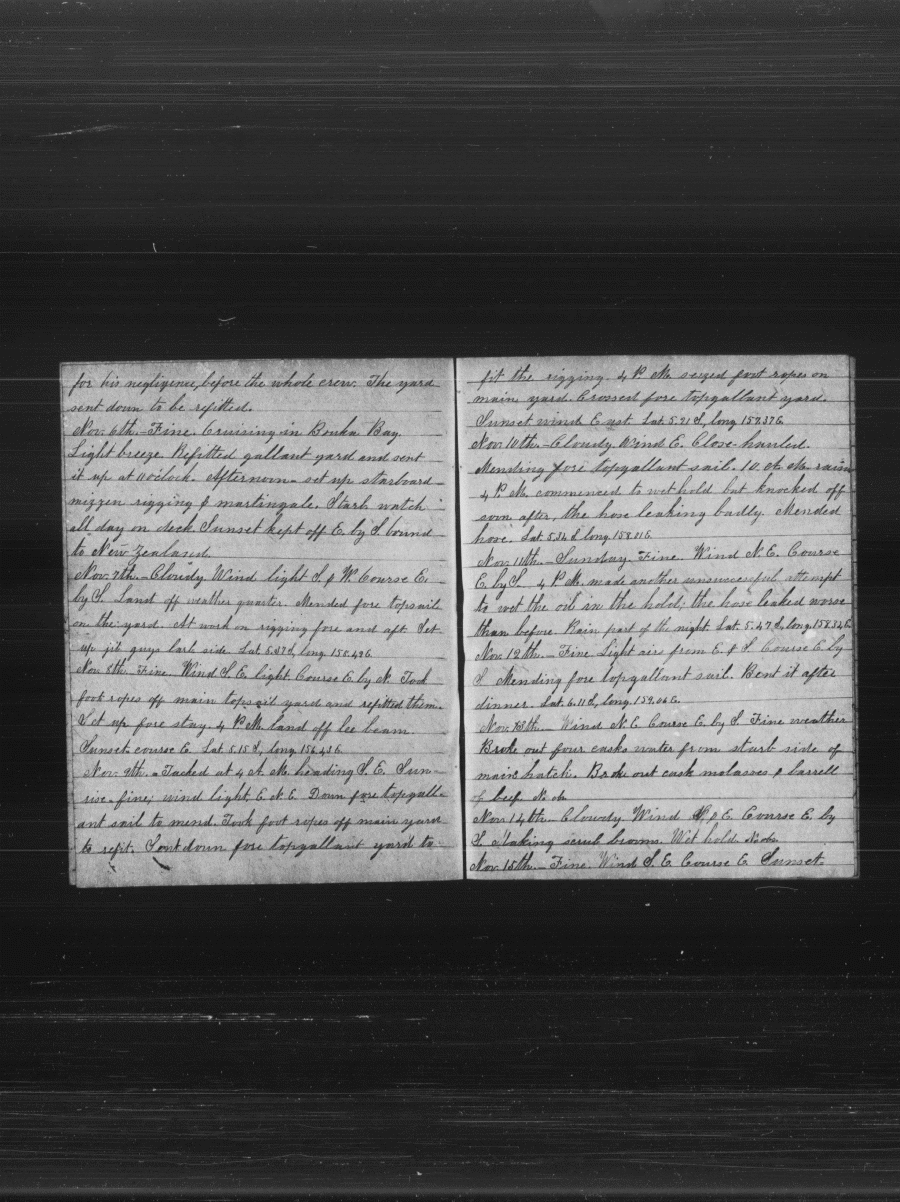 for his negligence, before the whole crew. The yard
sent down to be refitted.
Nov. 6th. - Fine. Cruising in Bouka Bay.
Light breeze. Refitted gallant yard and sent
it up at 11 o'clock. Afternoon - set up starboard
mizzen rigging & martingale. Starb. watch
all day on deck. Sunset kept off E. by S. bound
to New Zealand.
Nov. 7th. - Cloudy. Wind light S. & W. Course E.
by S. Land off weather quarter. Mended fore topsail
on the yard. At work on rigging fore and aft. Set
up jib guys larb. side. Lat. 5.37 S., long. 155.49 E.
Nov. 8th. Fine. Wind S.E. light. Course E. by N. Took
foot ropes off main topsail yard and refitted them.
Set up fore stay. 4 P.M. land off lee beam.
Sunset course E. Lat. 5.15 S., long. 156.43 E.
Nov. 9th. - Tacked at 4 A.M. heading S.E. Sun-
rise - fine; wind light, E.N.E. Down fore topgall-
ant sail to mend. Took foot ropes off main yard
to refit. Sent down fore topgallant yard to
fit the rigging. 4 P.M. seized foot ropes on
main yard. Crossed fore topgallant yard.
Sunset wind East. Lat. 5.21 S., long. 157.37 E.
Nov. 10th. - Cloudy. Wind E. Close-hauled.
Mending fore topgallant sail. 10 A.M. rain
4 P.M. commenced to wet hold but knocked off
soon after, the hose leaking badly. Mended
hose. Lat. 5.34 S. long. 158.11 E.
Nov. 11th. - Sunday. Fine. Wind N.E. Course
E. by S. 4 P.M. made another unsuccessful attempt
to wet the oil in the hold; the hose leaked worse
than before. Rain part of the night. Lat. 5.47 S., long. 158.54 E.
Nov. 12th. - Fine. Light airs from E. & S. Course E. by
S. Mending fore topgallant sail. Bent it after
dinner. Lat. 6.11 S., long. 159.06 E.
Nov. 13th. - Wind N.E. Course E. by S. Fine weather
Broke out four casks water from starb. side of
main hatch. Broke out cask molasses & barrell
of beef. No ob.
Nov. 14th. - Cloudy. Wind & E. Course E. by
S. Making scrub brooms. Wet hold. No ob.
Nov. 15th. - Fine. Wind S.E. Course E. Sunset.